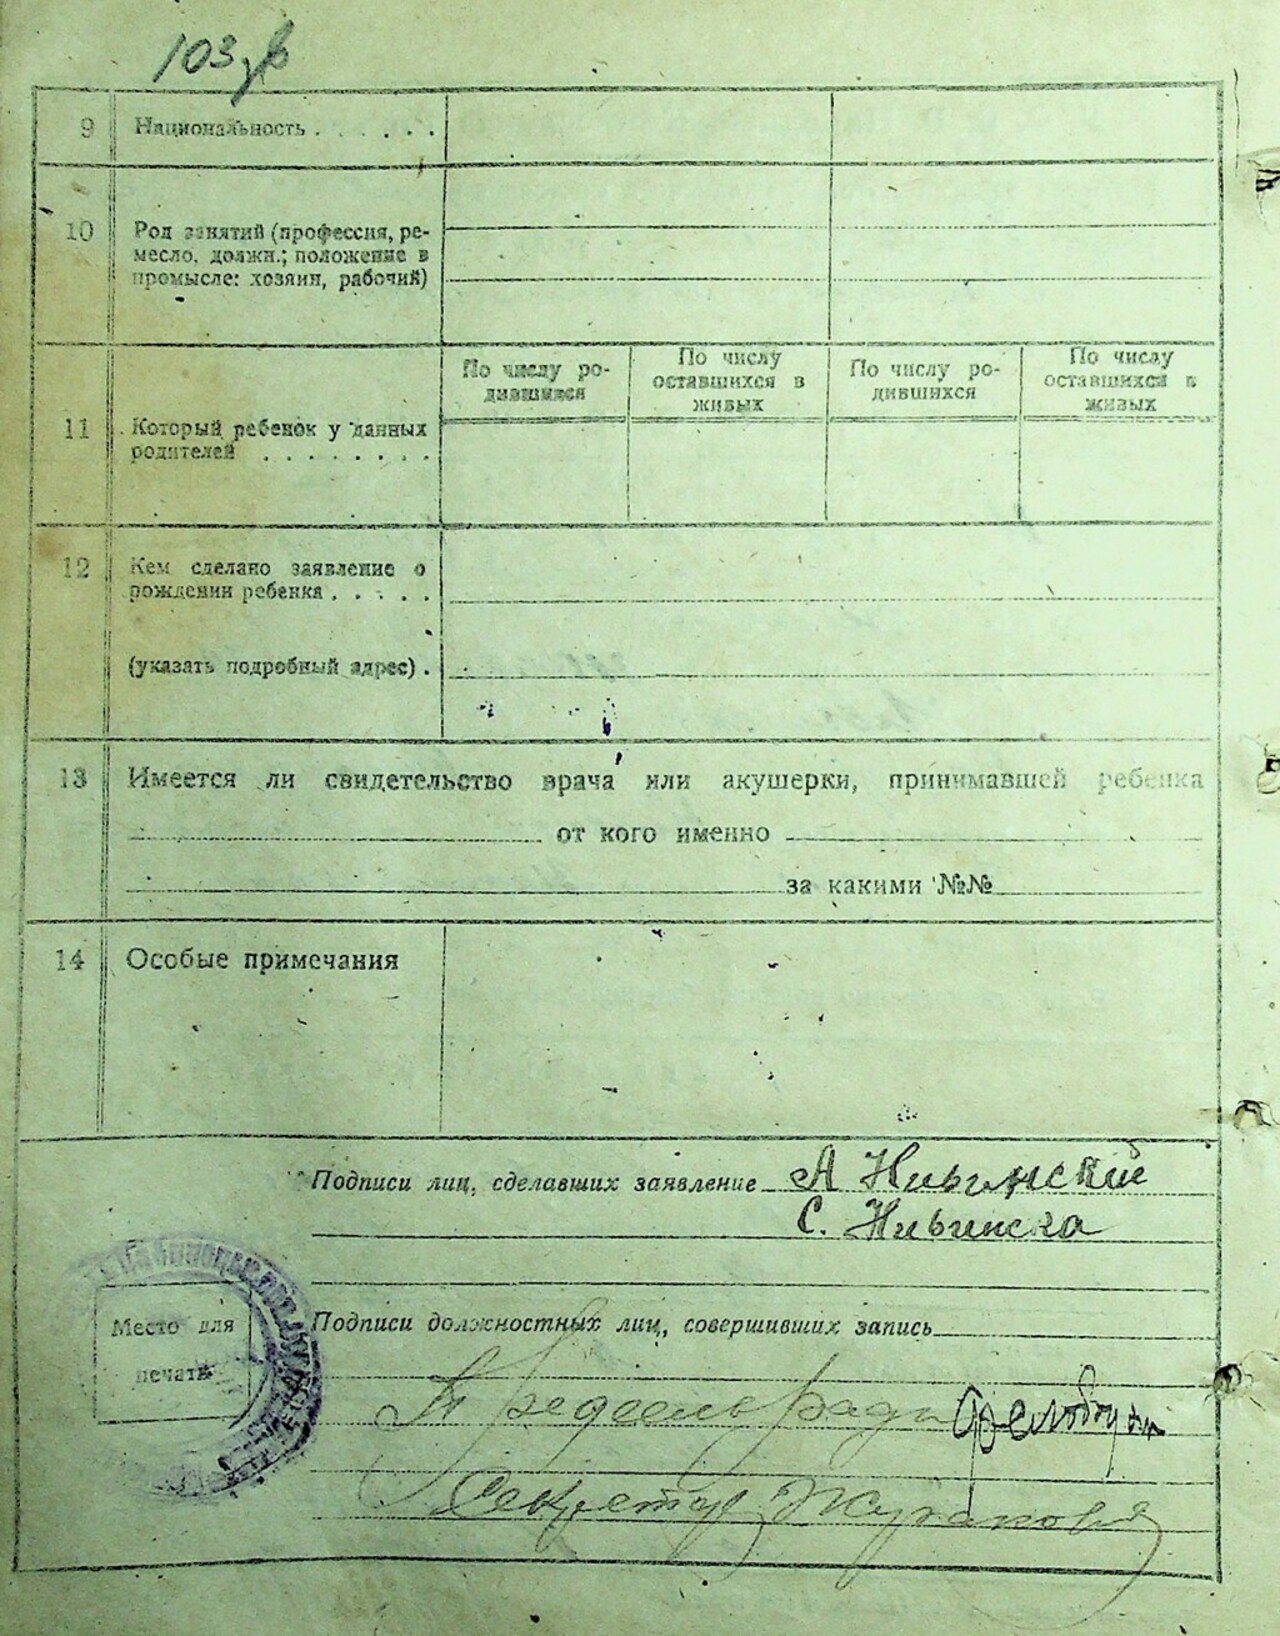 103
9 Национальность . . . . . .
10 Род занятий (профессия, ре-
месло, должн.; положение в
промысле: хозяин, рабочий)
По числу ро-
дившихся
По числу
оставшихся в
живых
По числу ро-
дившихся
По числу
оставшихся в
живых
11 Который ребенок у данных
родителей . . . . . . . .
12 Кем сделано заявление о
рождении ребенка . . . . .
(указать подробный адрес) .
13 Имеется ли свидетельство врача или акушерки, принимавшей ребенка
от кого именно
за какими №№
14 Особые примечания
Подписи лиц, сделавших заявление А Нивинский
С. Нивинска
Место для
печати
Подписи должностных лиц, совершивших запись
Пред сель ради
Секретар